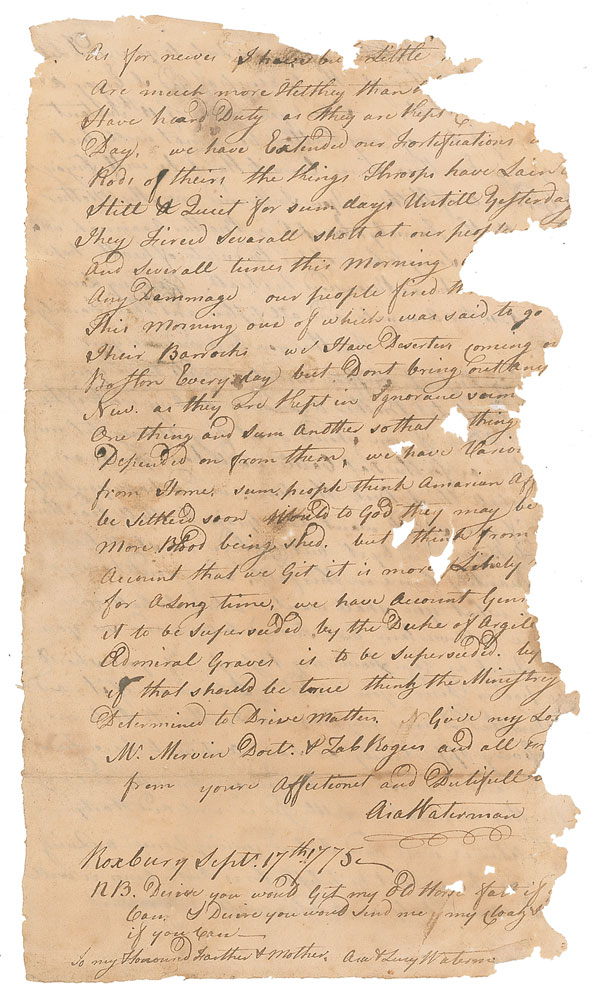 As for newes I have but Little
Are much more Helthey than
Have heard Duty as they are Kept
Day, we have Extended our Fortifications
Rods of theirs the things Throops have Lain
Still & Quiet for sum days Untill Yesterday
They Fireed Severall shott at our people
And Severall times this Morning
Any Dammage our people fired
This Morning one of which was said to go
Their Barrocks we Have Deserters coming
Boston Every day but Dont bring out Any
New. as they are Kept in Ignorane sum
One thing and sum Another so that thing
Depended on from them, we have Variou
from Home, sum people think Amarian Af
be Settled soon Would to God they may be
More Blood being shed. but think from
Account that we Git it is more Likely
for A Long time, we have Account Gen
it to be superseeded by the Duke of Argile
Admiral Graves is to be superseeded. by
if that should be true think the Ministrey
Determined to Drive Matters. Give my Lov
Mr. Mervin Doct. & Zab Rogers and all
from youre Affectionet and Dutifull
Asa Waterman
Roxbury Sept. 17th 1775
NB. Desire you would Git my Old Horse fat if
Can. I Desire you would send me my Coat &
if you Can
To my Honoured Faether & Mother. Asa & Lucy Waterm